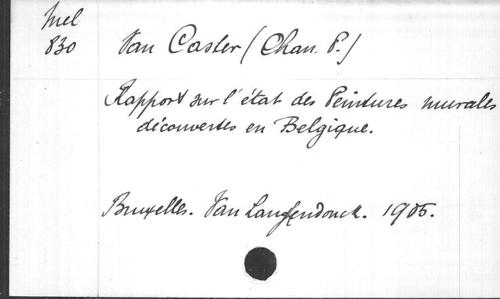 Mel
830
Van Caster (Chan. P.)
Rapport sur l'état des Peintures murales
découvertes en Belgique.
Bruxelles. Van Langhendonck. 1906.